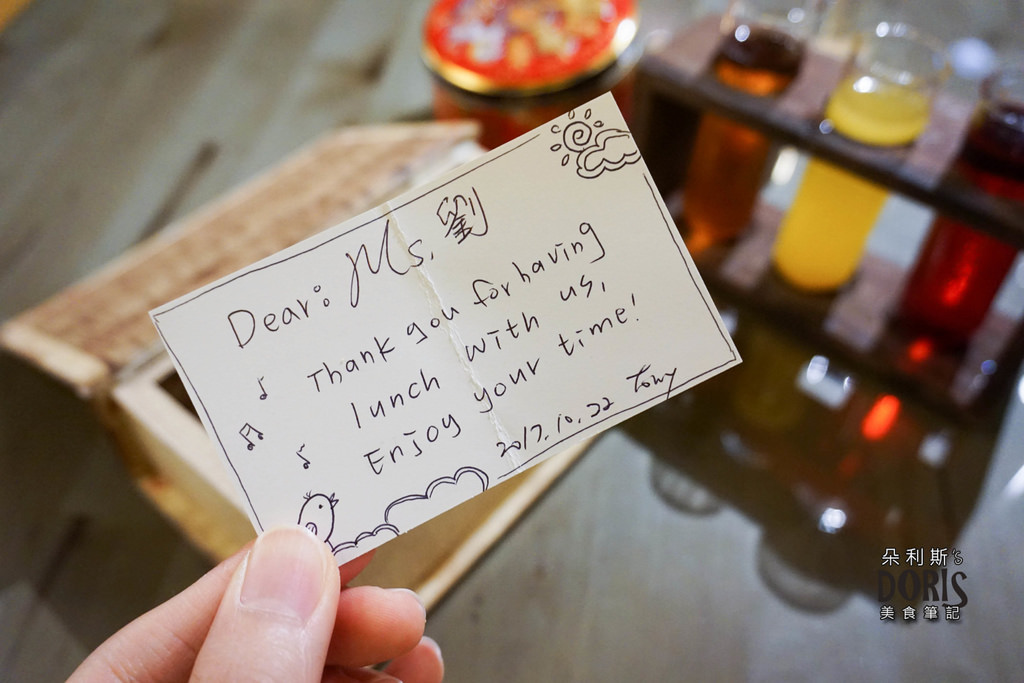 Dear: Ms. 劉
Thank you for having
lunch with us,
Enjoy your time!
2017.10.22 Tony
朵利斯's
DORIS
美食筆記